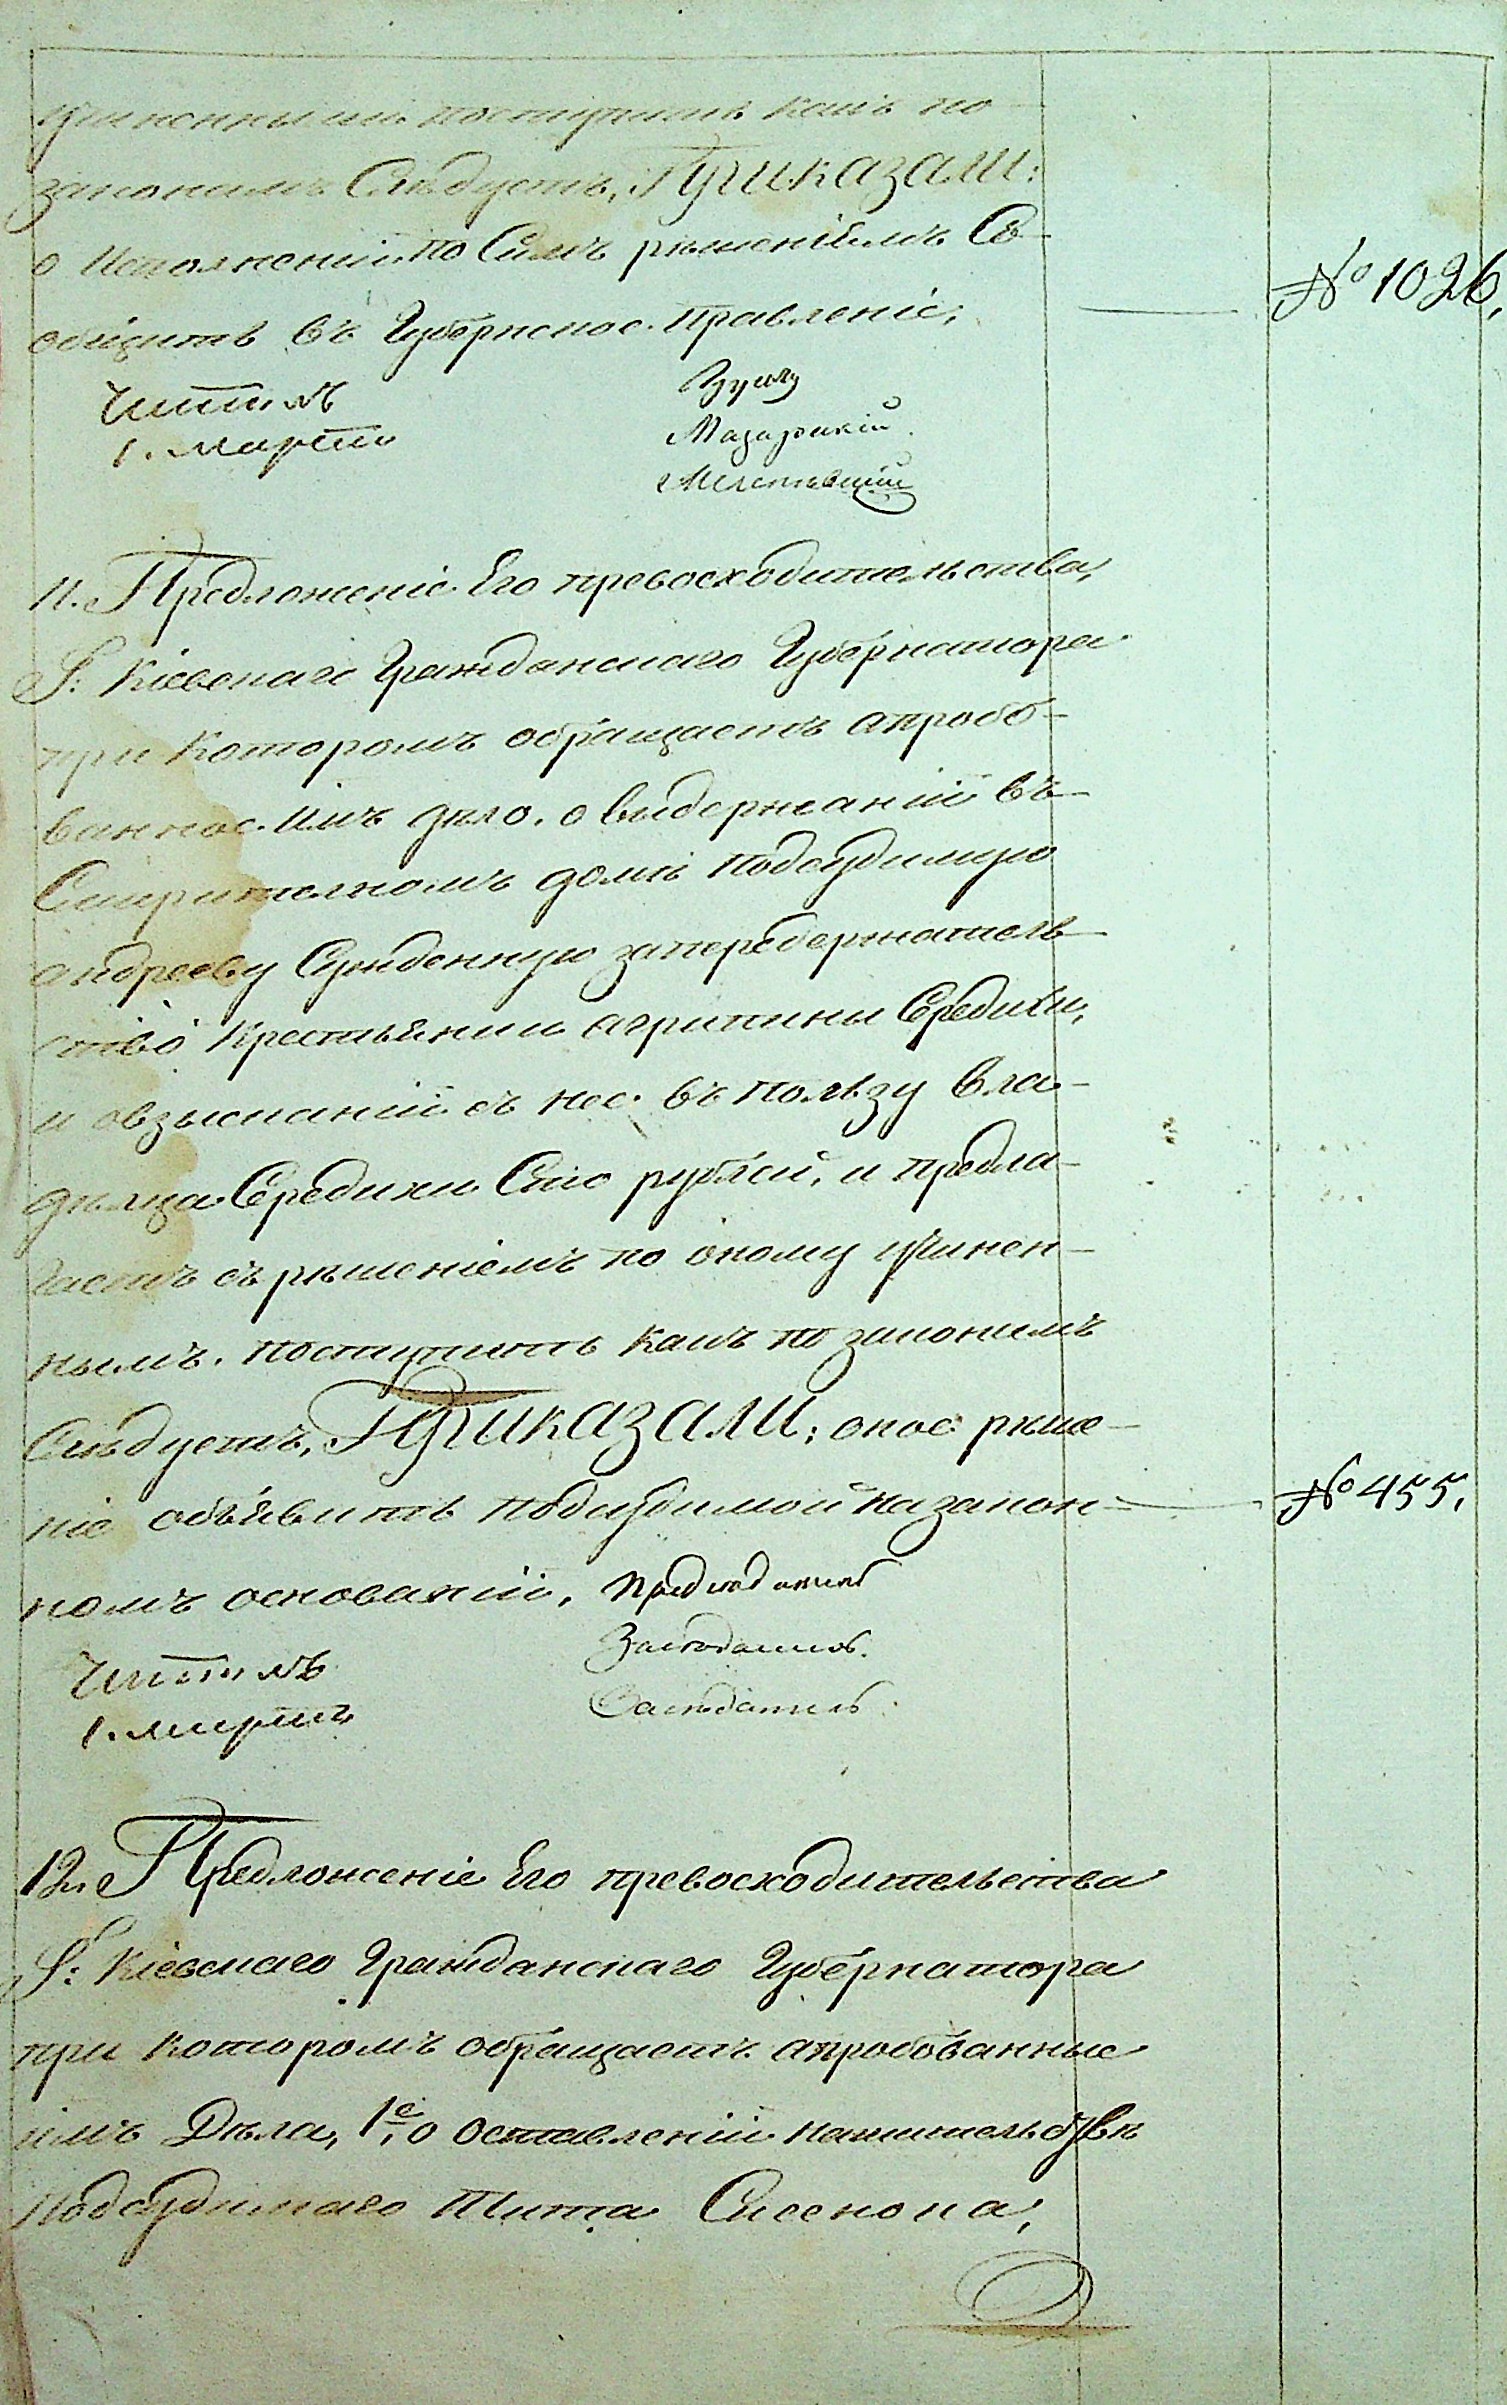 учиненными поступить какъ по
законамъ Слѣдуетъ, Приказали:
о исполненіи по Симъ рѣшеніямъ Со-
общить въ Губернское Правленіе;
№ 1026,
Читалъ
1. Марта
11. Предложеніе Его превосходительства,
Г: Кіевскаго Гражданскаго Губернатора
при Которомъ обращаетъ апробо-
ванное имъ дѣло. о выдержаніи въ
Смирителномъ домѣ подсудимую
андрееву Сужденную запередержатель-
ство Крестьянки агрипины Середихи,
и овзысканіи съ нее въ пользу вла-
дѣлца Середихи Сто рублей, и предла-
гаетъ съ рѣшеніемъ по оному учинен-
нымъ. поступить какъ по законамъ
Слѣдуетъ, Приказали; оное рѣше-
ніе объявить подсудимой на закон-
№ 455,
номъ основаніи,
Председатель
Заседатель.
Заседатель.
Читалъ
1. Марта
12. Предложеніе Его превосходительства
Г: Кіевскаго Гражданскаго Губернатора
при которомъ обращаетъ апробованные
имъ Дѣла, 1е, о Оставленіи нажительствѣ
Подсудимаго Тита